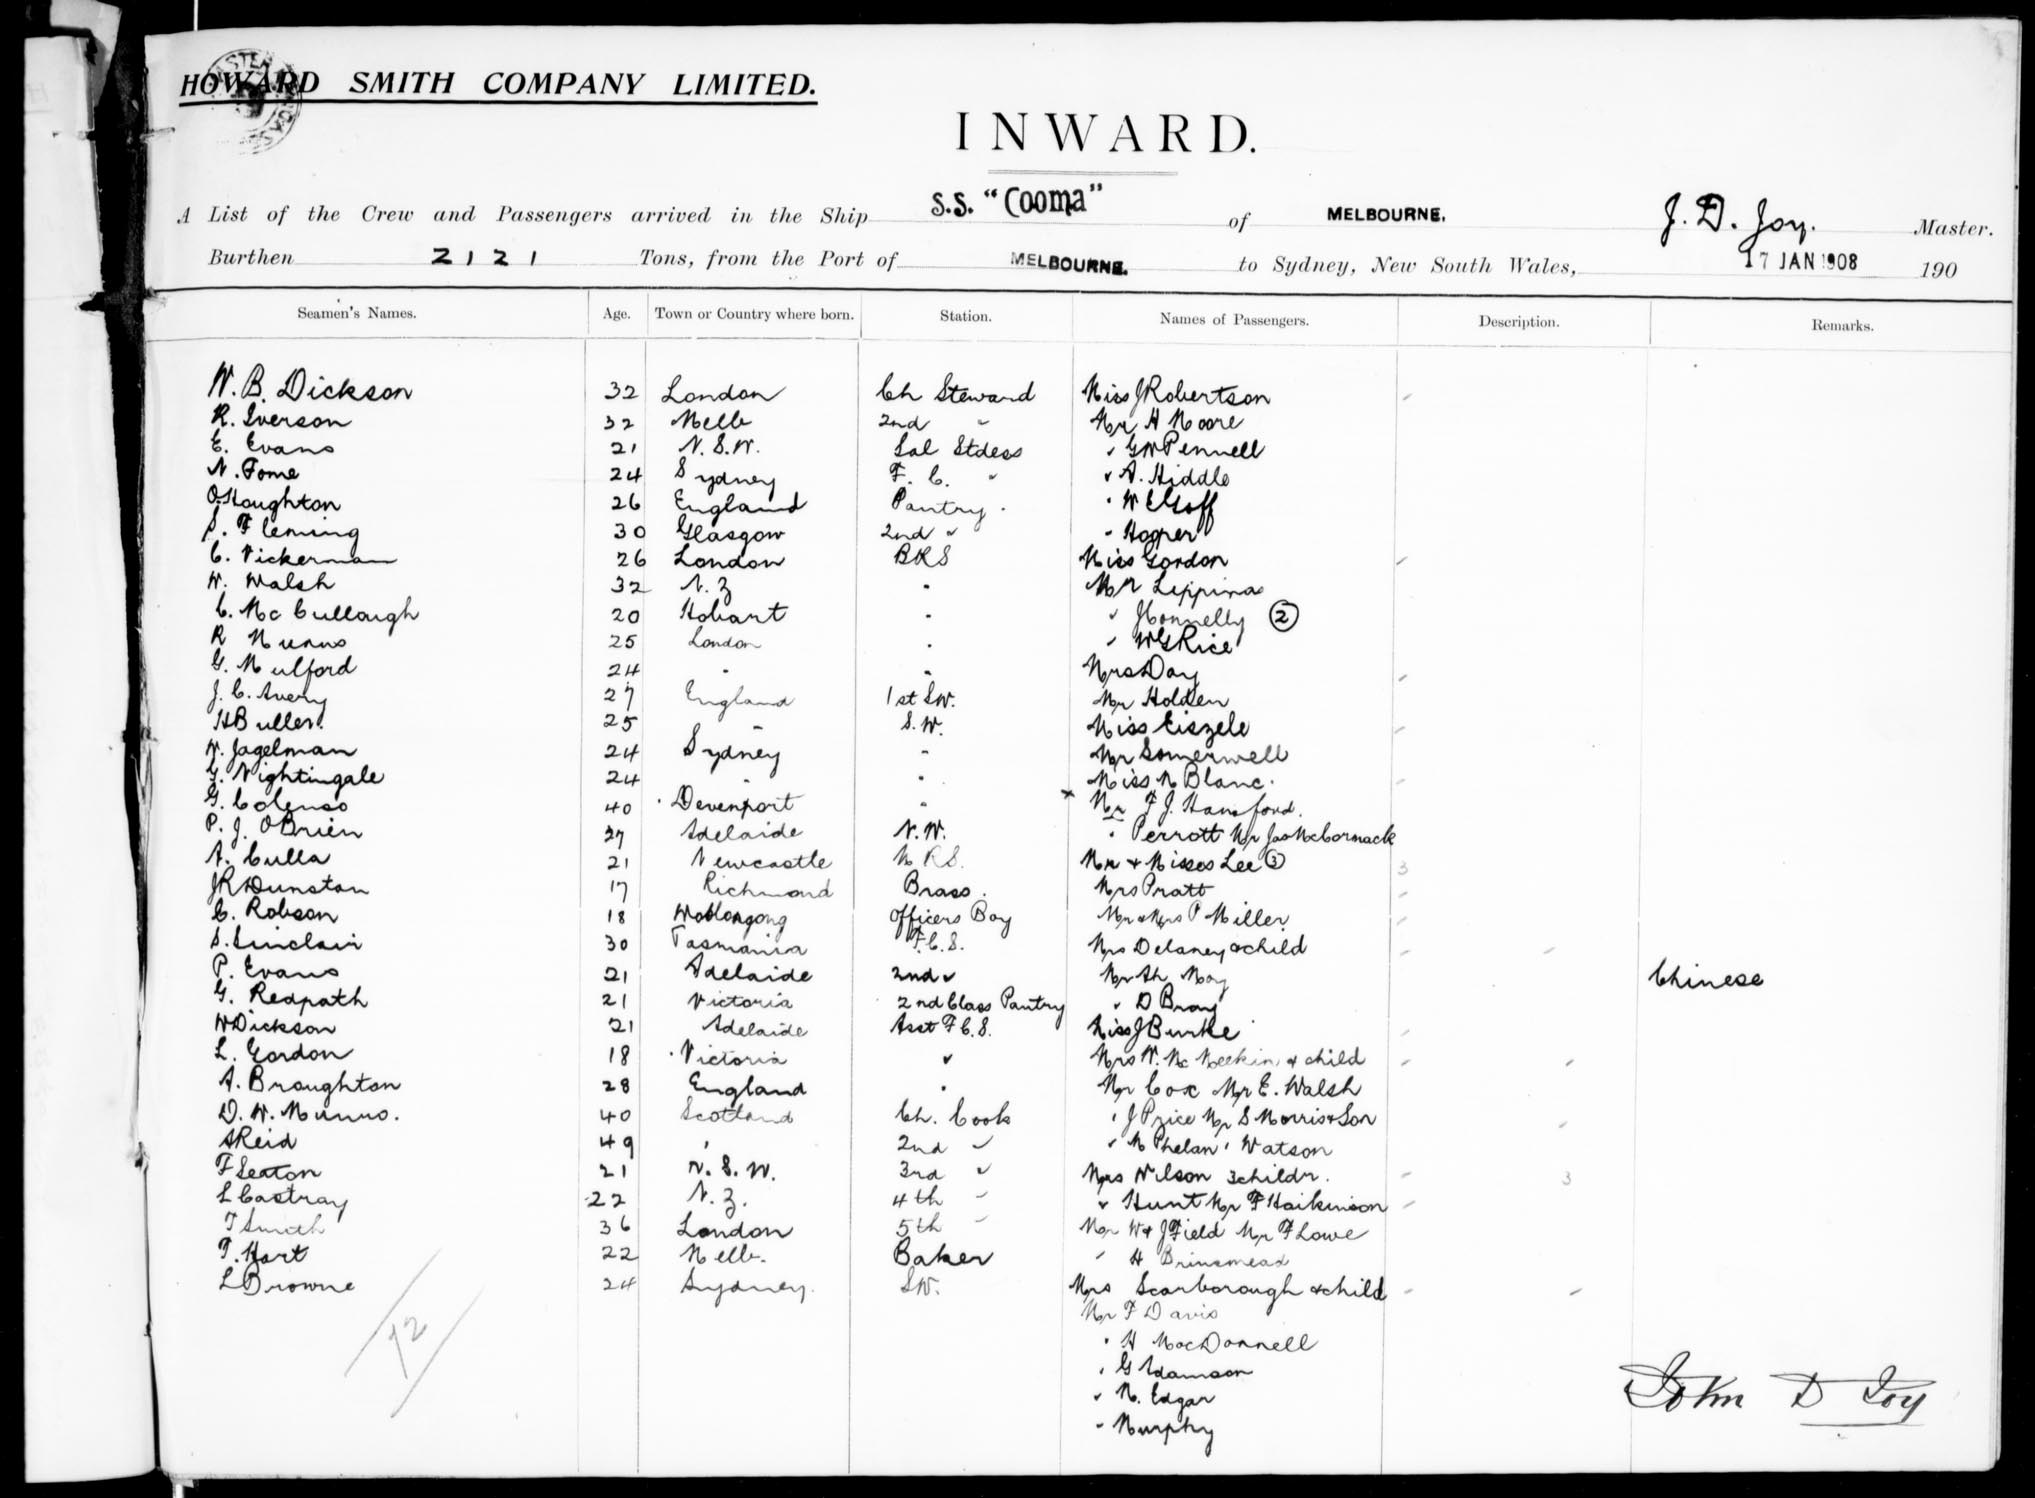 HOWARD SMITH COMPANY LIMITED.
INWARD.
A List of the Crew and Passengers arrived in the Ship S.S. "Cooma" of MELBOURNE. J. D. Joy. Master.
Burthen 2121 Tons, from the Port of MELBOURNE. to Sydney, New South Wales, 17 JAN 1908 190
Seamen's Names. Age. Town or Country where born. Station. Names of Passengers. Description. Remarks.
W. B. Dickson 32 London Ch Steward Miss J Robertson
R. Iverson 32 Melb 2nd " Mr H Moore
E. Evans 21 N.S.W. Sal Stdess " G W Pennell
N. Tome 24 Sydney F. C. " " A. Hiddle
O. Houghton 26 England Pantry. " W E Goff
S. Fleming 30 Glasgow 2nd " " Hooper
C. Vickerman 26 London BRS Miss Gordon
W. Walsh 32 N.Z " Mr Lippina
C. McCullaugh 20 Hobart " " J Connelly 2
R Munro 25 London " " W G Rice
G. Mulford 24 " " Mrs Day
J. C. Avery 27 England 1st S.W. Mr Holden
H Buller. 25 " S.W. Miss Eiszele
W. Jagelman 24 Sydney " Mr Somerwell
G. Nightingale 24 " " Miss M Blanc.
G. Colenso 40 Devenport " x Mr F J. Hansford.
P. J. O'Brien 27 Adelaide N.W. " Perrott Mr Jas McCormack
A. Culla 21 Newcastle M R S. Mr & Misses Lee 3 3
J R Dunstan 17 Richmond Brass. Mrs Pratt
C. Robson 18 Woolongong Officers Boy Mr & Mrs P Miller
S. Sinclair 30 Tasmania F.C.S. Mrs Delaney & child
P. Evans 21 Adelaide 2nd " Mr Ah Moy Chinese
G. Redpath 21 Victoria 2nd Class Pantry " D Bray
W Dickson 21 Adelaide Asst F C.S. Miss J Burke
L. Gordon 18 Victoria " Mrs W. McMeekin & child
A. Broughton 28 England " Mr Cox Mr E. Walsh
D. W. Munro. 40 Scotland Ch. Cook " J Price Mr S Morris & Son
A Reid 49 " 2nd " " M Phelan " Watson
F Seaton 21 N.S.W. 3rd " Mrs Wilson 3 childr. 3
L Castray 22 N.Z. 4th " " Hunt Mr F Haikinson
T Smith 36 London 5th " Mr W & J Field Mr F Lowe
T. Hart 22 Melb. Baker " H Brinsmead
L Browne 24 Sydney. S.W. Mrs Scarborough & child
Mr F Davis
" H MacDonnell
" G Adamson
" N. Edgar
" Murphy
72
John D Joy